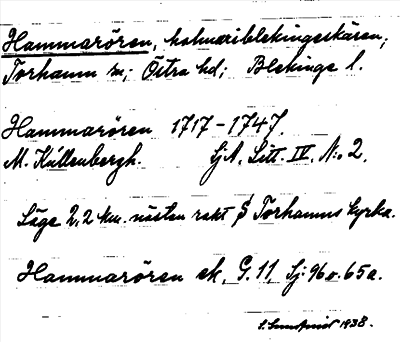 Hammarören, holme i blekingeskären;
Torhamn sn; Östra hd; Blekinge l.
Hammarören 1717-1747.
M. Källenbergh. SjA. Litt. IV. N:o 2.
Läge 2,2 km. nästan rakt S Torhamns kyrka.
Hammarören ek. G. 11, Sj: 96 o. 65a.
1938.